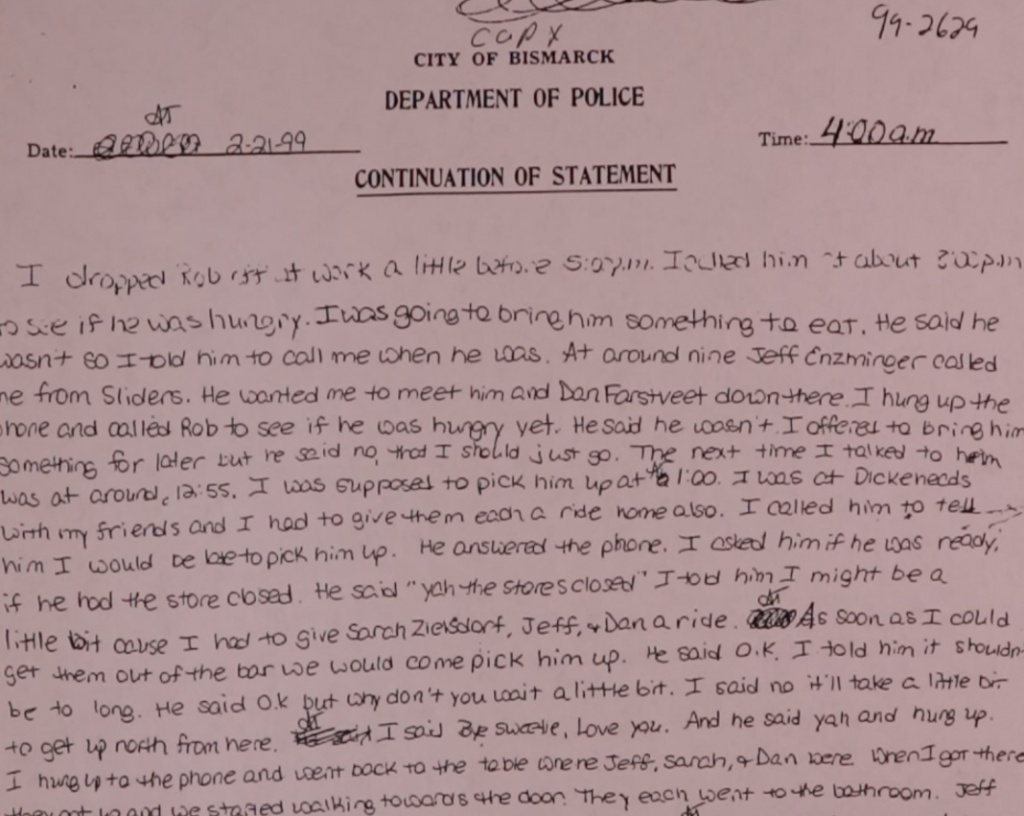 COPY
99-2629
CITY OF BISMARCK
DEPARTMENT OF POLICE
AT
Date: 2-21-99
Time: 4:00 a.m
CONTINUATION OF STATEMENT
I dropped Rob off at work a little before 5:00p.m. I called him at about 8:00pm
to see if he was hungry. I was going to bring him something to eat. He said he
wasn't so I told him to call me when he was. At around nine Jeff Enzminger called
me from Sliders. He wanted me to meet him and Dan Farstveet down there. I hung up the
phone and called Rob to see if he was hungry yet. He said he wasn't. I offered to bring him
something for later but he said no, that I should just go. The next time I talked to him
was at around 12:55. I was supposed to pick him up at 1:00. I was at Dickeneeds
with my friends and I had to give them each a ride home also. I called him to tell
him I would be late to pick him up. He answered the phone. I asked him if he was ready,
if he had the store closed. He said "yah the stores closed" I told him I might be a
little bit cause I had to give Sarah Zielsdorf, Jeff, + Dan a ride. AT As soon as I could
get them out of the bar we would come pick him up. He said O.K. I told him it shouldn
be to long. He said O.K but why don't you wait a little bit. I said no it'll take a little bit
to get up north from here. AT I said Bye sweetie, Love you. And he said yah and hung up.
I hung up the phone and went back to the table where Jeff, Sarah, + Dan were when I got there
they got up and we started walking towards the door. They each went to the bathroom. Jeff